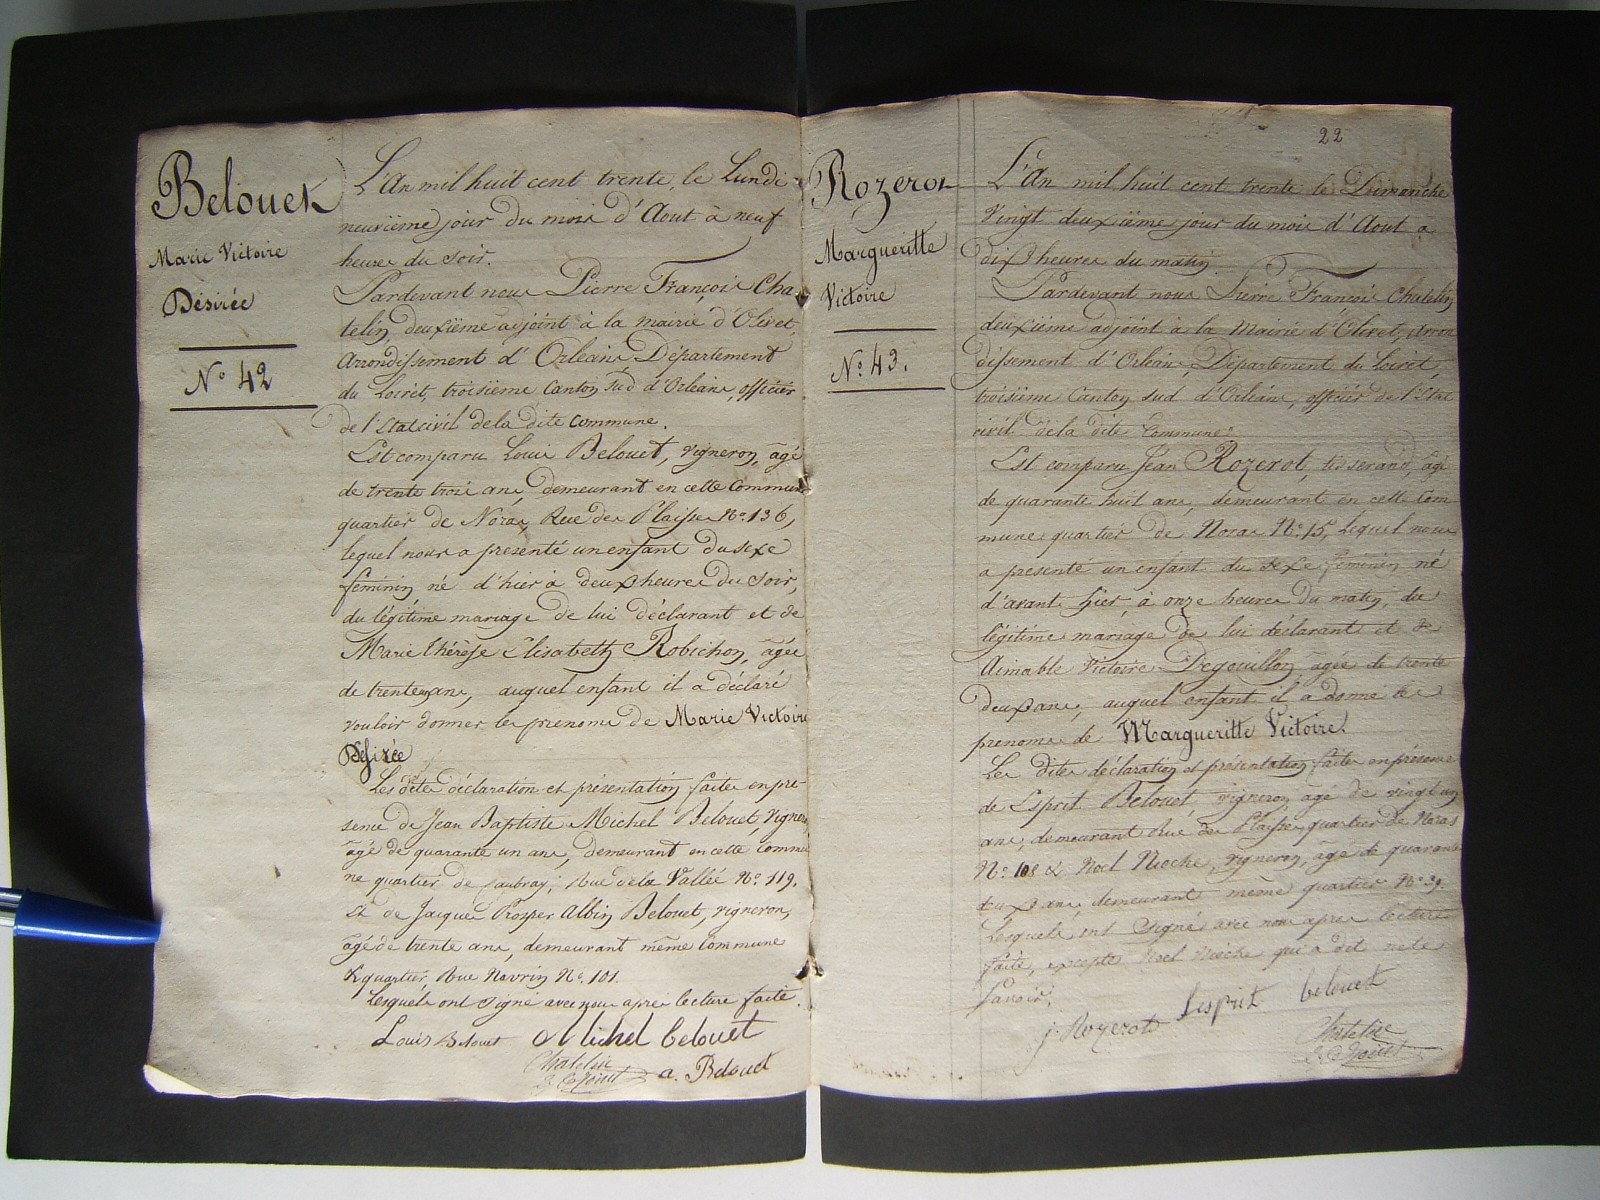 Belouet
Marie Victoire
Désirée
N° 42
L'An mil huit cent trente, le Lundi
neuvième jour du mois d'Aout à neuf
heures du soir.
Pardevant nous Pierre François Cha
telin, deuxième adjoint à la mairie d'Olivet,
Arrondissement d'Orléans Département
du Loiret, troisième Canton Sud d'Orléans, officier
de l'Etat civil dela dite Commune.
Est comparu Louis Belouet, vigneron, agé
de trente trois ans, demeurant en cette Commune
quartier de Noras, Rue des Plaisses N° 136,
lequel nous a presenté un enfant du sexe
féminin, né d'hier à deux heures du soir,
du légitime mariage de lui déclarant et de
Marie thérèse Elisabeth Robichon, agée
de trente ans, auquel enfant il a déclaré
vouloir donner les prenoms de Marie Victoire
Désirée
Les dites déclaration et présentation faites en pre-
sence de Jean Baptiste Michel Belouet, Vigneron
agé de quarante un ans, demeurant en cette commu
ne quartier de Caubray, Rue dela Vallée N° 119.
Et de Jacques Prosper Albin Belouet, vigneron,
agé de trente ans, demeurant même Commune
& quartier, Rue Navrin N° 101.
Lesquels ont signé avec nous après lecture faite.
Louis Belouet Michel belouet
Chatelin a. Belouet
22
Rozerot
Margueritte
Victoire
N° 43.
L'An mil huit cent trente le Dimanche
Vingt deuxième jour du mois d'Aout a
dix heures du matin.
Pardevant nous Pierre François Chatelin
deuxième adjoint à la Mairie d'Olivet, arron
dissement d'Orléans, Département du Loiret,
troisième Canton Sud d'Orléans, officier de l'Etat
civil dela dite Commune.
Est comparu Jean Rozerot, tisserand, agé
de quarante huit ans, demeurant en cette Com
mune quartier de Noras N° 15, lequel nous
a presenté un enfant du sexe féminin né
d'avant hier, à onze heures du matin, du
légitime mariage de lui déclarant et de
Aimable Victoire Degouillon agée de trente
deux ans, auquel enfant il a donné les
prenoms de Margueritte Victoire.
Les dites déclaration et présentation faites en présence
de Esprit Belouet, vigneron agé de vingt un
ans, demeurant Rue des Plaisses quartier de Noras
N° 108 & Noel Nioche, vigneron, agé de quarante
deux ans, demeurant même quartier N° 39.
Lesquels ont signé avec nous après lecture
faite, excepté Noel Nioche qui a dit ne le
savoir.
j. Rozerot Lesprit belouet
Chatelin